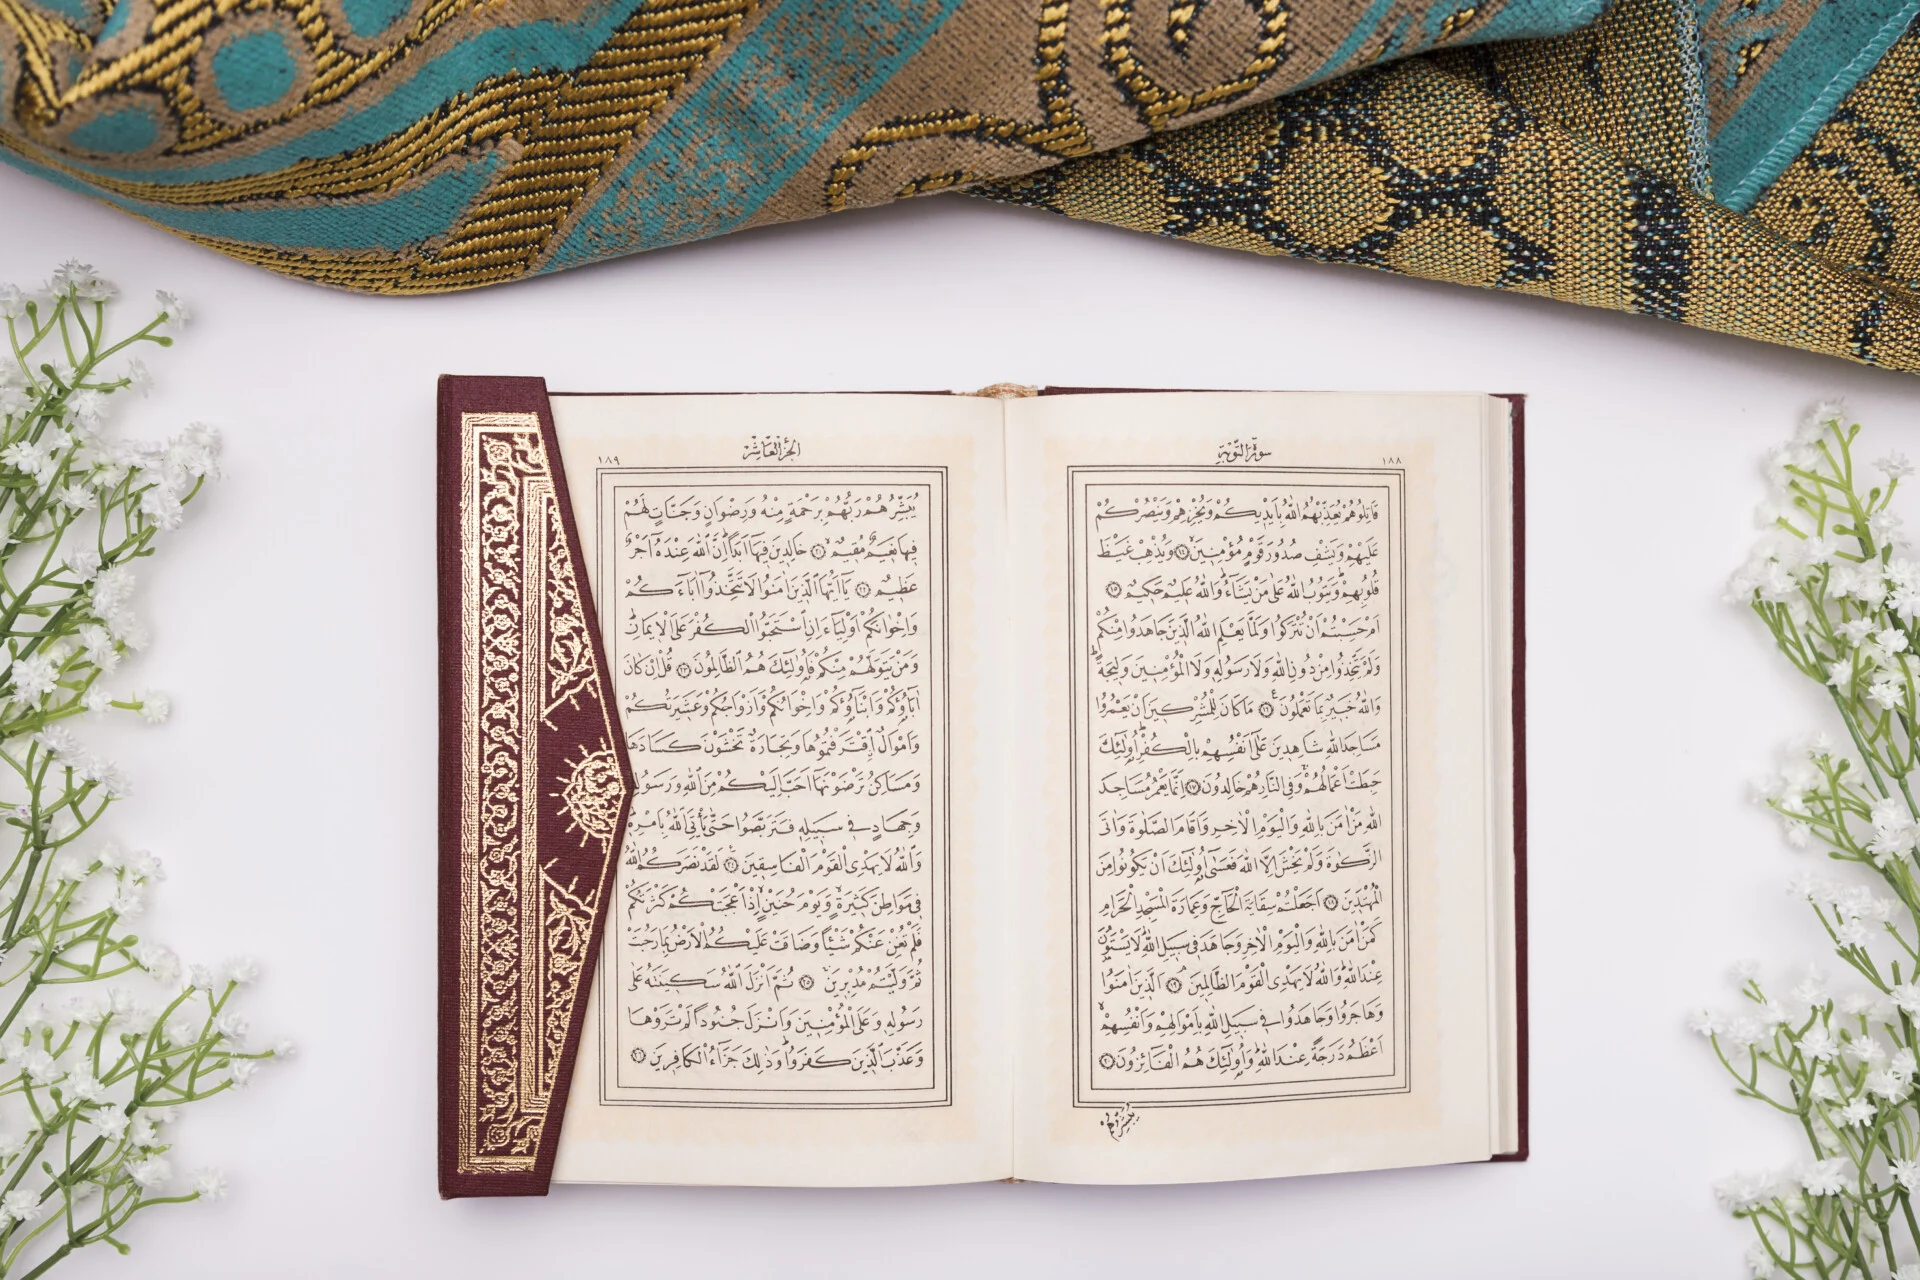 سورة التوبة
١٨٨
قَاتِلُوهُمْ يُعَذِّبْهُمُ اللّٰهُ بِاَيْدِيكُمْ وَيُخْزِهِمْ وَيَنْصُرْكُمْ
عَلَيْهِمْ وَيَشْفِ صُدُورَ قَوْمٍ مُؤْمِنِينَۙ ﴿١٤﴾ وَيُذْهِبْ غَيْظَ
قُلُوبِهِمْۜ وَيَتُوبُ اللّٰهُ عَلٰى مَنْ يَشَٓاءُۜ وَاللّٰهُ عَلِيمٌ حَكِيمٌ ﴿١٥﴾
اَمْ حَسِبْتُمْ اَنْ تُتْرَكُوا وَلَمَّا يَعْلَمِ اللّٰهُ الَّذِينَ جَاهَدُوا مِنْكُمْ
وَلَمْ يَتَّخِذُوا مِنْ دُونِ اللّٰهِ وَلَا رَسُولِهِ وَلَا الْمُؤْمِنِينَ وَلِيجَةًۜ
وَاللّٰهُ خَبِيرٌ بِمَا تَعْمَلُونَ۟ ﴿١٦﴾ مَا كَانَ لِلْمُشْرِكِينَ اَنْ يَعْمُرُوا
مَسَاجِدَ اللّٰهِ شَاهِدِينَ عَلٰٓى اَنْفُسِهِمْ بِالْكُفْرِۜ اُو۬لٰٓئِكَ
حَبِطَتْ اَعْمَالُهُمْۚ وَفِي النَّارِ هُمْ خَالِدُونَ ﴿١٧﴾ اِنَّمَا يَعْمُرُ مَسَاجِدَ
اللّٰهِ مَنْ اٰمَنَ بِاللّٰهِ وَالْيَوْمِ الْاٰخِرِ وَاَقَامَ الصَّلٰوةَ وَاٰتَى
الزَّكٰوةَ وَلَمْ يَخْشَ اِلَّا اللّٰهَ فَعَسٰٓى اُو۬لٰٓئِكَ اَنْ يَكُونُوا مِنَ
الْمُهْتَدِينَ ﴿١٨﴾ اَجَعَلْتُمْ سِقَايَةَ الْحَٓاجِّ وَعِمَارَةَ الْمَسْجِدِ الْحَرَامِ
كَمَنْ اٰمَنَ بِاللّٰهِ وَالْيَوْمِ الْاٰخِرِ وَجَاهَدَ فِي سَبِيلِ اللّٰهِۜ لَا يَسْتَوُ۫نَ
عِنْدَ اللّٰهِۜ وَاللّٰهُ لَا يَهْدِي الْقَوْمَ الظَّالِمِينَۢ ﴿١٩﴾ اَلَّذِينَ اٰمَنُوا
وَهَاجَرُوا وَجَاهَدُوا فِي سَبِيلِ اللّٰهِ بِاَمْوَالِهِمْ وَاَنْفُسِهِمْۙ
اَعْظَمُ دَرَجَةً عِنْدَ اللّٰهِۜ وَاُو۬لٰٓئِكَ هُمُ الْفَٓائِزُونَ ﴿٢٠﴾
يُبَشِّرُهُمْ
الجزء العاشر
١٨٩
يُبَشِّرُهُمْ رَبُّهُمْ بِرَحْمَةٍ مِنْهُ وَرِضْوَانٍ وَجَنَّاتٍ لَهُمْ
فِيهَا نَعِيمٌ مُقِيمٌۙ ﴿٢١﴾ خَالِدِينَ فِيهَٓا اَبَدًاۜ اِنَّ اللّٰهَ عِنْدَهُٓ اَجْرٌ
عَظِيمٌ ﴿٢٢﴾ يَٓا اَيُّهَا الَّذِينَ اٰمَنُوا لَا تَتَّخِذُٓوا اٰبَٓاءَكُمْ
وَاِخْوَانَكُمْ اَوْلِيَٓاءَ اِنِ اسْتَحَبُّوا الْكُفْرَ عَلَى الْاِيمَانِۜ
وَمَنْ يَتَوَلَّهُمْ مِنْكُمْ فَاُو۬لٰٓئِكَ هُمُ الظَّالِمُونَ ﴿٢٣﴾ قُلْ اِنْ كَانَ
اٰبَٓاؤُ۬كُمْ وَاَبْنَٓاؤُ۬كُمْ وَاِخْوَانُكُمْ وَاَزْوَاجُكُمْ وَعَشِيرَتُكُمْ
وَاَمْوَالٌۨ اقْتَرَفْتُمُوهَا وَتِجَارَةٌ تَخْشَوْنَ كَسَادَهَا
وَمَسَاكِنُ تَرْضَوْنَهَٓا اَحَبَّ اِلَيْكُمْ مِنَ اللّٰهِ وَرَسُولِهِ
وَجِهَادٍ فِي سَبِيلِهِ فَتَرَبَّصُوا حَتّٰى يَأْتِيَ اللّٰهُ بِاَمْرِهِۜ
وَاللّٰهُ لَا يَهْدِي الْقَوْمَ الْفَاسِقِينَ۟ ﴿٢٤﴾ لَقَدْ نَصَرَكُمُ اللّٰهُ
فِي مَوَاطِنَ كَثِيرَةٍۙ وَيَوْمَ حُنَيْنٍۙ اِذْ اَعْجَبَتْكُمْ كَثْرَتُكُمْ
فَلَمْ تُغْنِ عَنْكُمْ شَيْـًٔا وَضَاقَتْ عَلَيْكُمُ الْاَرْضُ بِمَا رَحُبَتْ
ثُمَّ وَلَّيْتُمْ مُدْبِرِينَۚ ﴿٢٥﴾ ثُمَّ اَنْزَلَ اللّٰهُ سَكِينَتَهُ عَلٰى
رَسُولِهِ وَعَلَى الْمُؤْمِنِينَ وَاَنْزَلَ جُنُودًا لَمْ تَرَوْهَا
وَعَذَّبَ الَّذِينَ كَفَرُواۜ وَذٰلِكَ جَزَٓاءُ الْكَافِرِينَ ﴿٢٦﴾